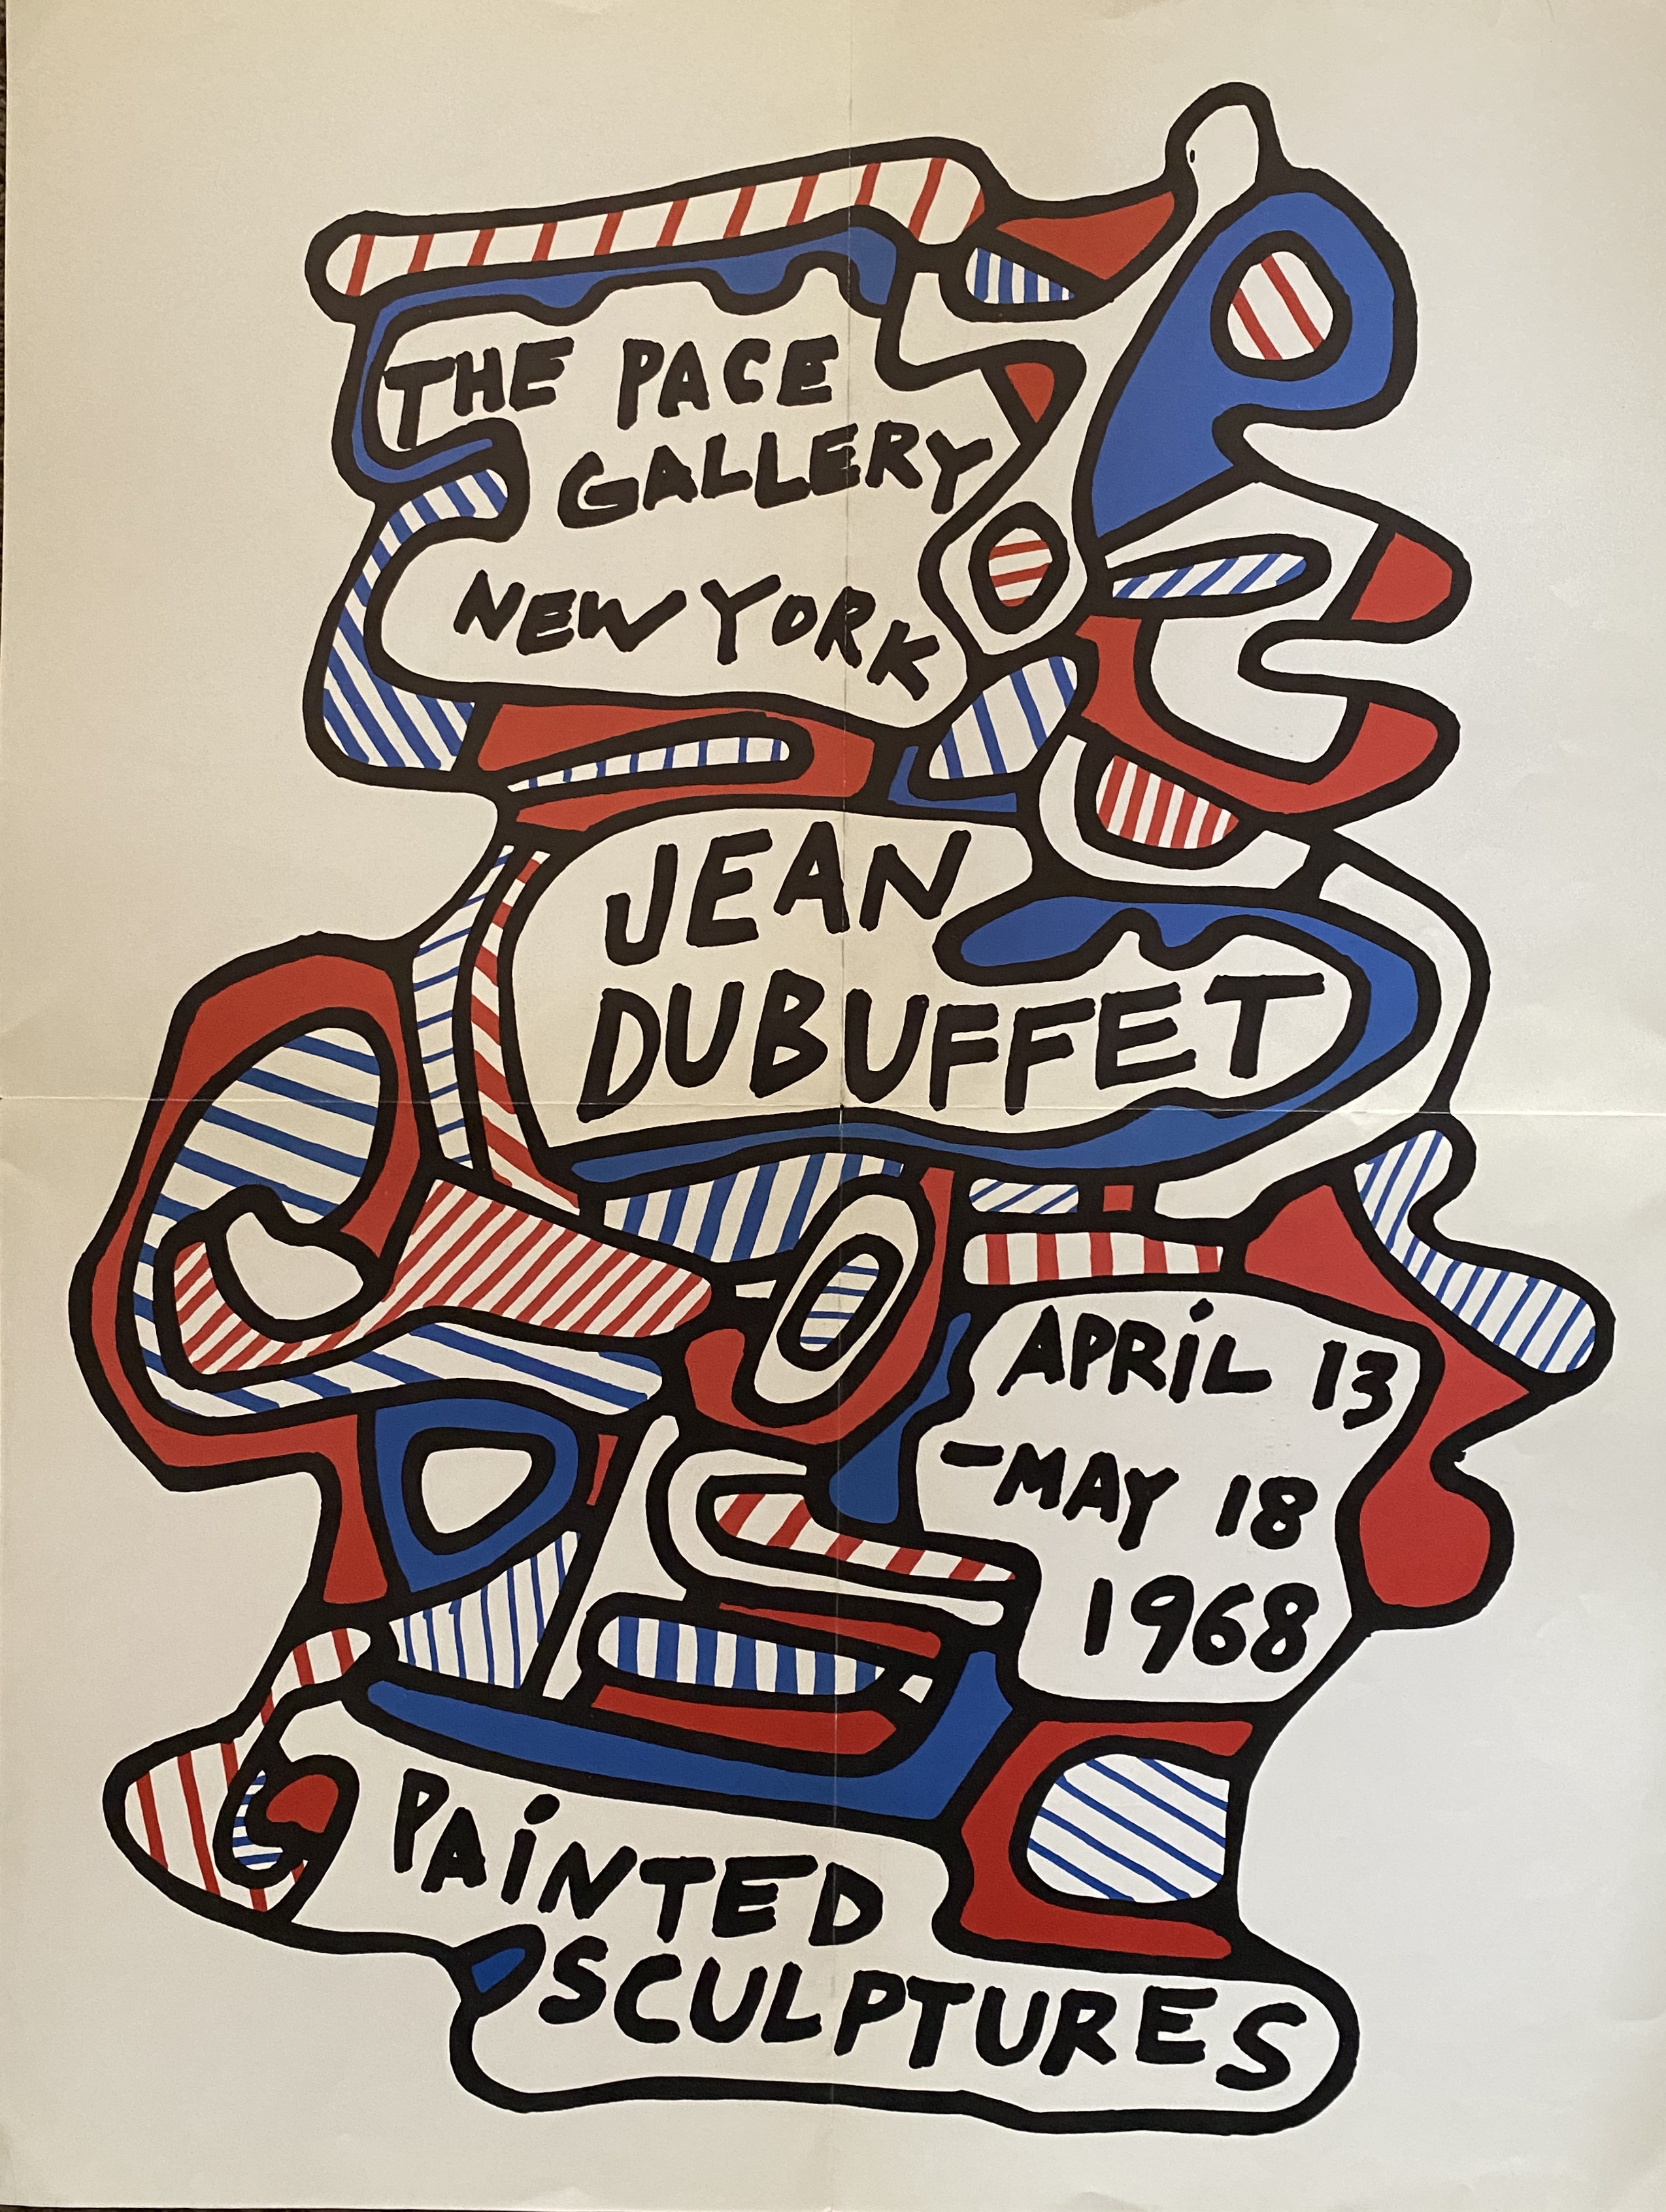 THE PACE
GALLERY
NEW YORK
JEAN
DUBUFFET
APRiL 13
-MAY 18
1968
PAiNTED
SCULPTURES